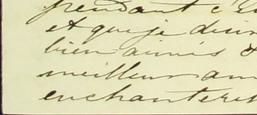 pendant c
et que je disu
bien aimés &
meilleur am
enchanteres